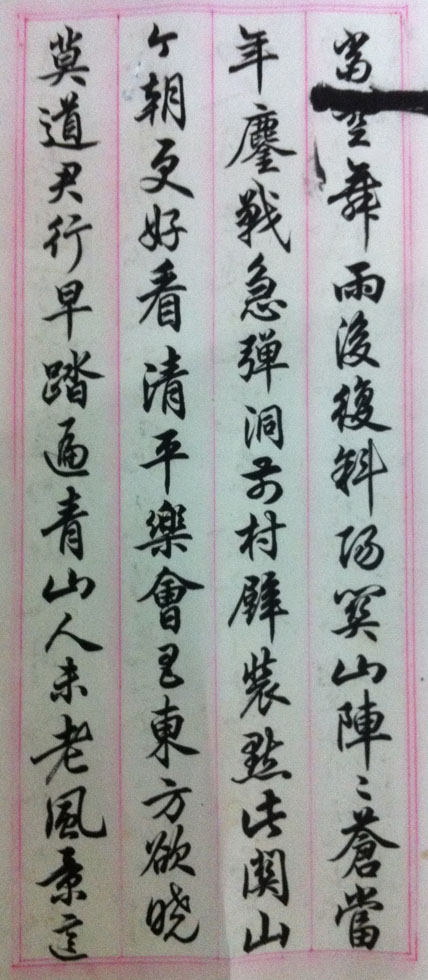 當空舞雨後復斜陽関山陣々蒼當
年鏖戰急彈洞前村壁裝點此関山
今朝更好看清平樂會昌東方欲曉
莫道君行早踏遍青山人未老風景這